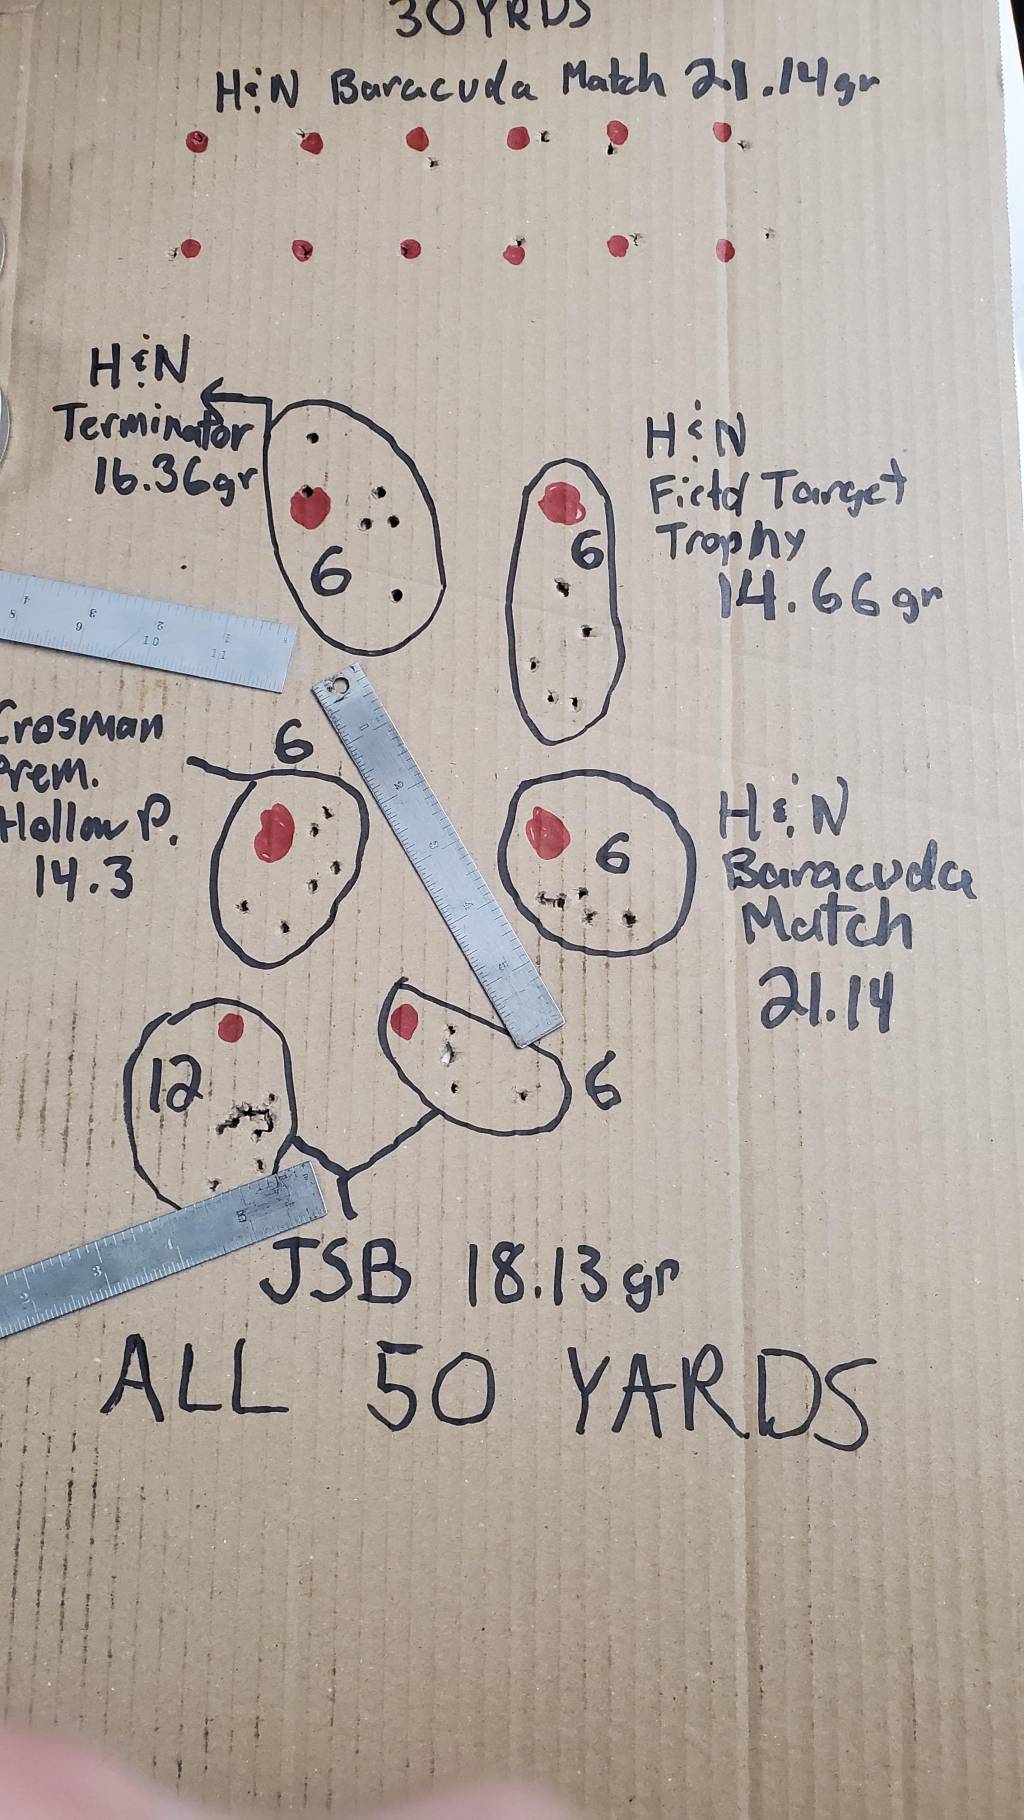 30 YRDS
H&N Baracuda Match 21.14gr
H&N
Terminator
16.36gr
6
H&N
Field Target
Trophy
14.66 gr
6
Crosman
Prem.
Hollow P.
14.3
6
H&N
Baracuda
Match
21.14
6
12
6
JSB 18.13 gr
ALL 50 YARDS